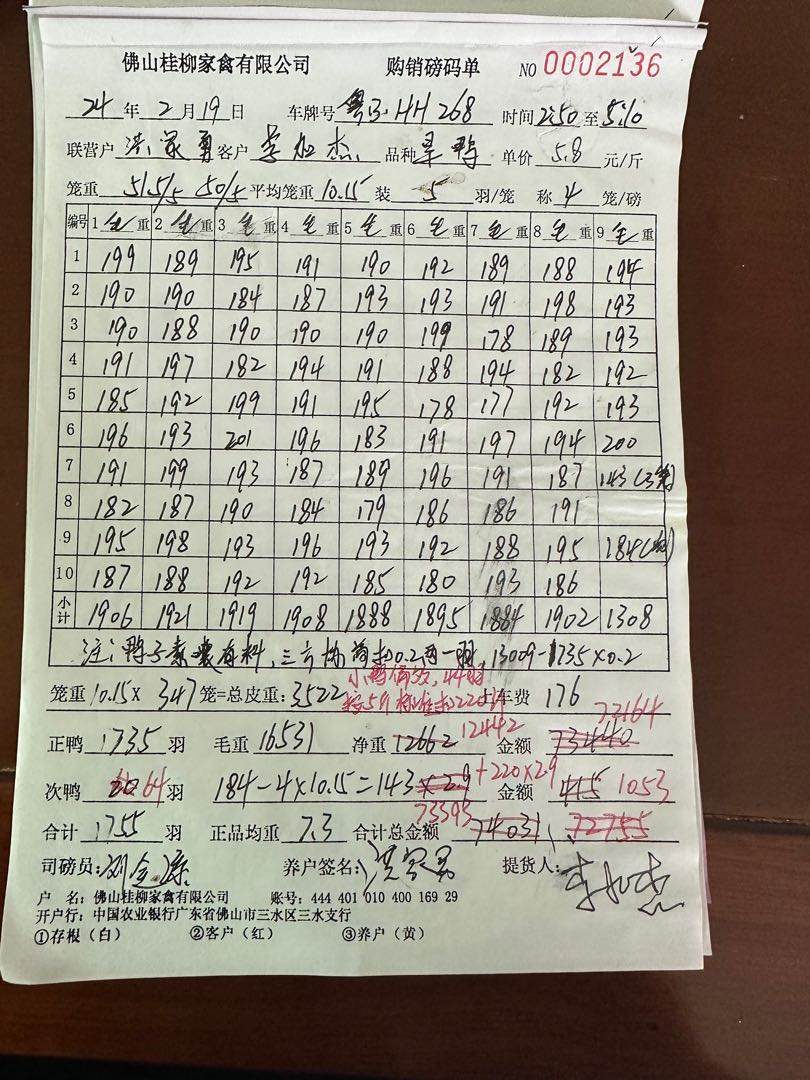 佛山桂柳家禽有限公司 购销磅码单 NO 0002136
24 年 2 月 19 日 车牌号 粤 HH268 时间 2:50 至 5:10
联营户 洪家勇 客户 李 杰 品种 鸭 单价 5.8 元/斤
笼重 51.5/5 50/5 平均笼重 10.15 装 5 羽/笼 称 4 笼/磅
编号 1 毛 重 2 毛 重 3 毛 重 4 毛 重 5 毛 重 6 毛 重 7 毛 重 8 毛 重 9 毛 重
1 199 189 195 191 190 192 189 188 194
2 190 190 184 187 193 193 191 198 193
3 190 188 190 190 190 199 178 189 193
4 191 197 182 194 191 188 194 182 192
5 185 192 199 191 195 178 177 192 193
6 196 193 201 196 183 191 197 194 200
7 191 199 193 187 189 196 191 187 143 (3笼)
8 182 187 190 184 179 186 186 191
9 195 198 193 196 193 192 188 195 184
10 187 188 192 192 185 180 193 186
小计 1906 1921 1919 1908 1888 1895 1884 1902 1308
注: 鸭子 有料, 扣0.2 一羽, 13009-1735×0.2
小鸭 44羽
笼重 10.15× 347 笼=总皮重: 3522 按5斤标准扣220斤 上车费 176
73164
正鸭 1735 羽 毛重 16531 净重 12662 12442 金额 73440
次鸭 20 64 羽 184-4×10.15=143×2.9 +220×2.9 金额 415 1053
73593
合计 1755 羽 正品均重 7.3 合计总金额 74031 72755
司磅员: 刘 养户签名: 洪家勇 提货人: 李 杰
户 名: 佛山桂柳家禽有限公司 账号: 444 401 010 400 169 29
开户行: 中国农业银行广东省佛山市三水区三水支行
①存根（白） ②客户（红） ③养户（黄）